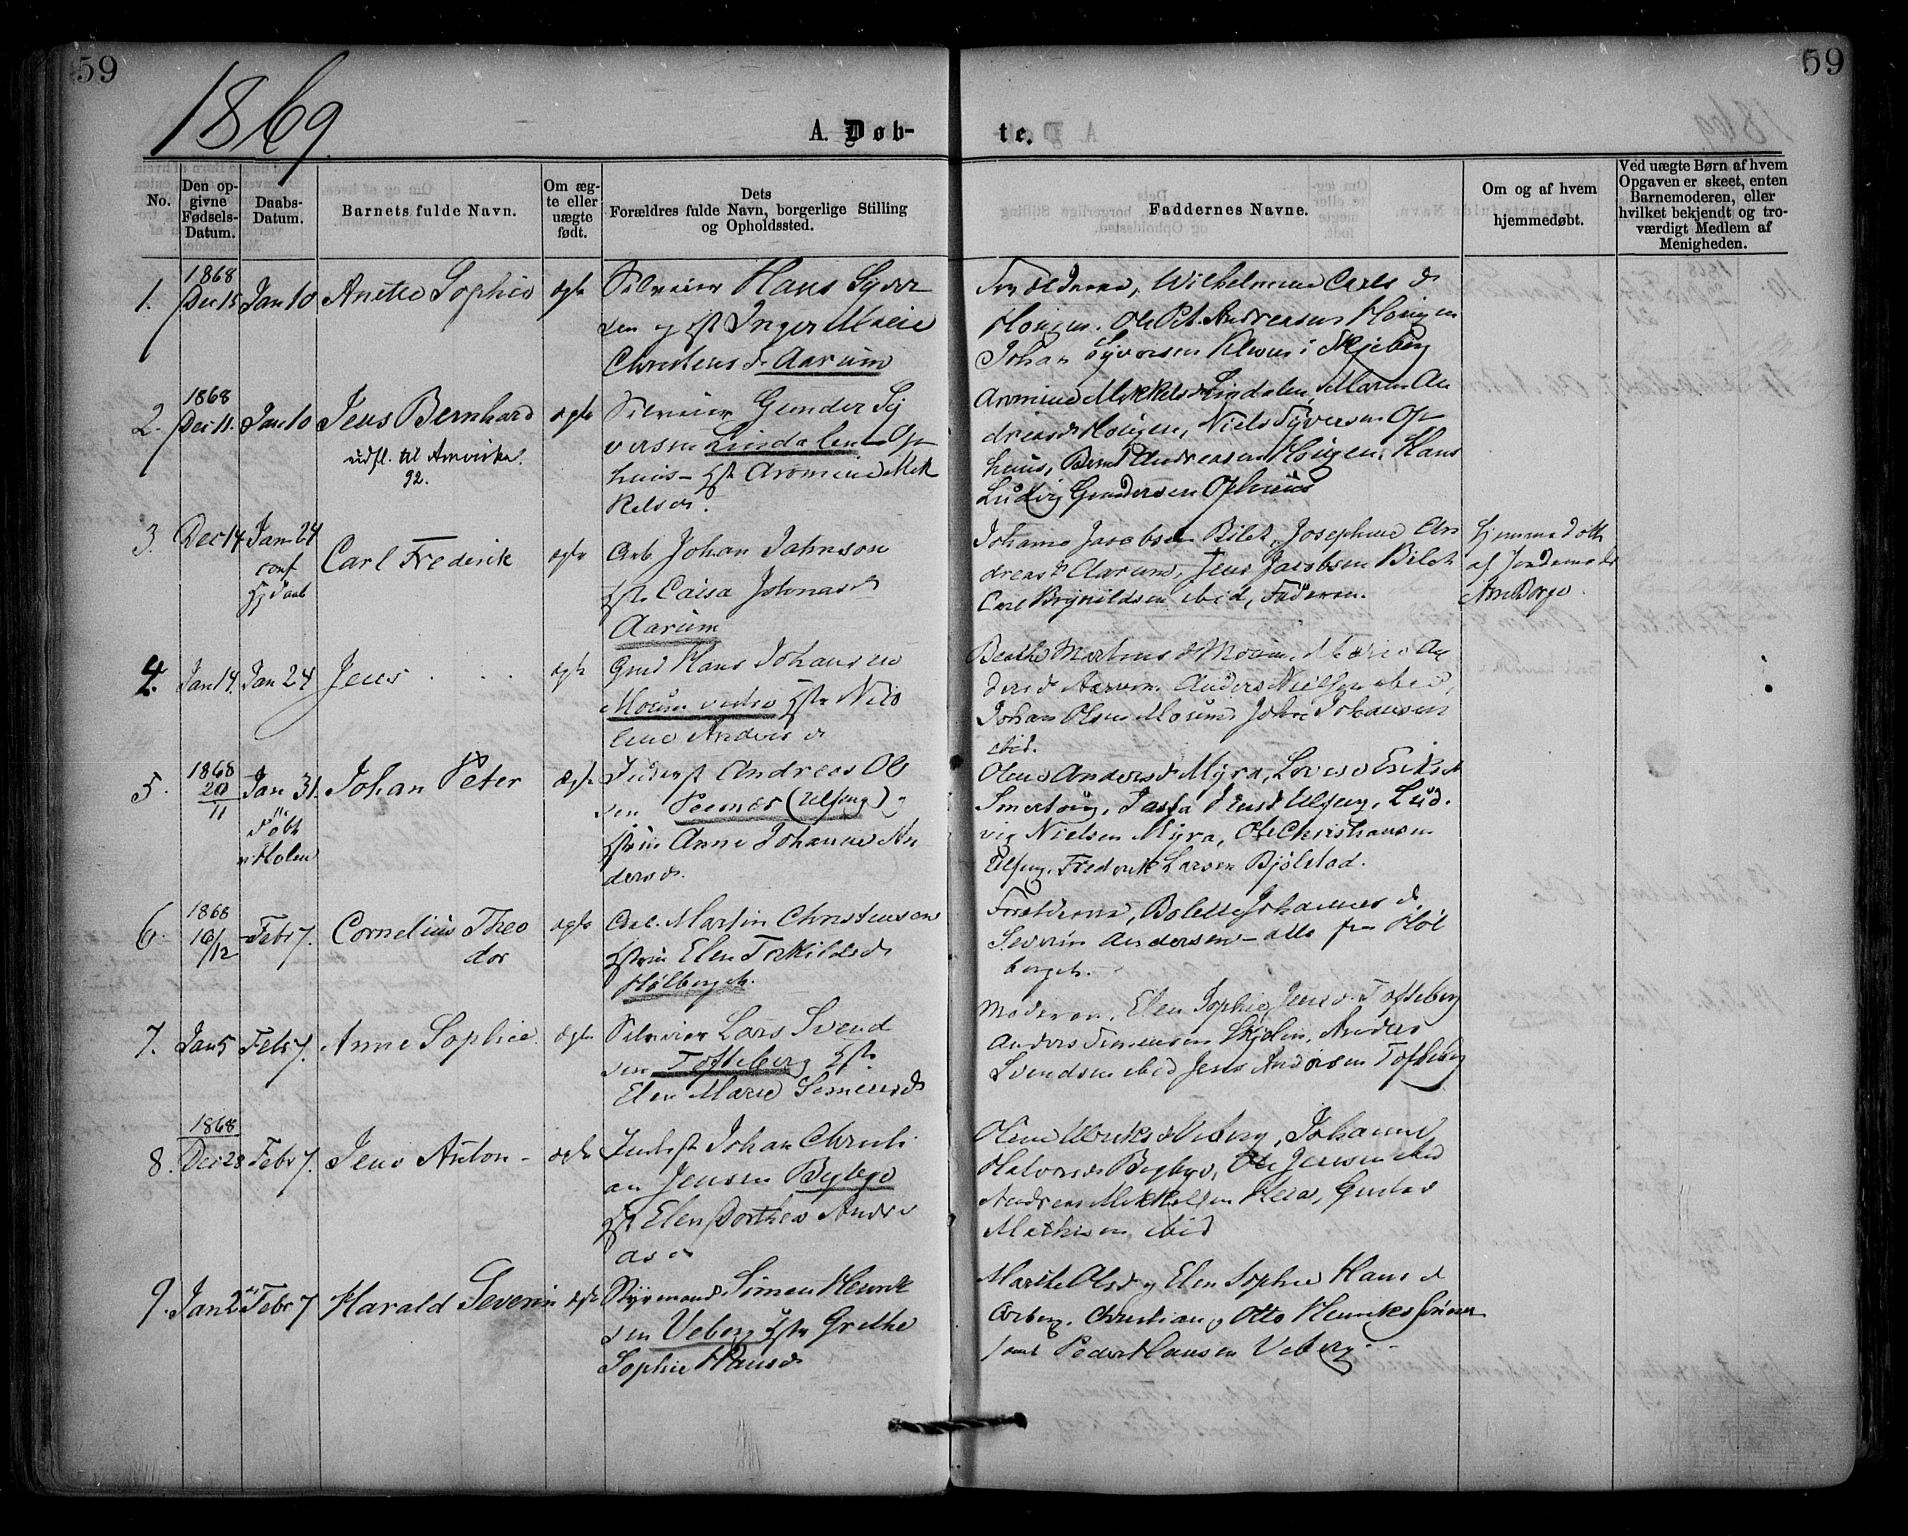 59
59
1869
A. Døb-
te.
No.
Den op-
givne
Fødsels-
Datum.
Daabs-
Datum.
Barnets fulde Navn.
Om æg-
te eller
uægte
født.
Dets
Forældres fulde Navn, borgerlige Stilling
og Opholdssted.
Faddernes Navne.
Om og af hvem
hjemmedøbt.
Ved uægte Børn af hvem
Opgaven er skeet, enten
Barnemoderen, eller
hvilket bekjendt og tro-
værdigt Medlem af
Menigheden.
1.
1868
Dec 15
Jan 10
Anette Sophie
ægte
Selveier Hans Syver
sen og Hst Inger Marie
Christens d. Aarum
Forældrene, Wilhelmine Carls d
Hougen. Ole Pet. Andreasen Hougen
Johan Syversen i Skjeberg
2.
1868
Dec 11.
Jan 10
Jens Bernhard
udfl. til Amerika
92.
ægte
Selveier Gunder Sy
versen Lindalen Op
huus - Hst Aromine Mik
kelsd.
Aromine Mikkelsd Lindalen, Maren An
dreasd Hougen, Niels Syversen Op
huus, Bernt Andreasen Hougen. Hans
Ludvig Gundersen Ophuus
3.
Dec 14
Jan 24
conf
Hj Daab
Carl Frederik
ægte
Arb. Johan Jahnson
Hst Caisa Johnasd
Aarum
Johanne Jacobsen Bilet, Josephine An
dreas d. Aarum, Jens Jacobsen Bilet
Carl Brynildsen ibid, Faderen.
Hjemmedøbt
af Jordemoder
Borge
4.
Jan 14.
Jan 24
Jens
ægte
Gmd Hans Johansen
Moum vestre Hst Nico
line Anders d
Beathe Martins d Moum, Marie An
ders d Aarum. Anders Nielsen ibid,
Johan Olsen Moum, John Johansen
ibid.
5.
1868
20
11
Jan 31.
døbt
i Holen
Johan Peter
ægte
Inderst Andreas Ol
sen (Ulfeng) og
Hstru Anne Johanne An
ders d.
Olene Anders d Myra, Lovise Eriks d
Ulfeng, Lud
vig Nielsen Myra, Ole Christiansen
Ulfeng. Frederik Larsen Bjølstad.
6.
1868
16/12
Febr 7.
Cornelius Theo
dor
ægte
Arb. Martin Christensen
Hstru Elen Torkilds d
Hølberget.
Forældrene, Bolette Johannes d,
Severin Andersen - alle fra Høl
berget.
7.
Jan 5
Febr 7.
Anne Sophie
ægte
Selveier Lars Svend
sen Tofteberg Hst
Elen Marie Simens d
Moderen, Elen Sophie Jens d. Tofteberg
Anders Simensen Skjolin, Anders
Svendsen ibid Jens Andersen Tofteberg
8.
1868
Dec 28
Febr 7.
Jens Anton
ægte
Inderst Johan Christi
an Jensen Begbye
Hst Elen Dorthea Andre
as d
Oline Ulriks d Veberg, Johanne
Halvors d Begbye, Ole Jensen ibid
Andreas Mikkelsen Heia, Gustav
Mathisen ibid
9.
Jan 2
Febr 7
Harald Severin
ægte
Styrmand Simen Henrik
sen Veberg Hst Grethe
Sophie Hansd
Marthe Olsd og Elen Sophie Hans d
Veberg. Christian og Otto Henriksønner
samt Peder Hansen Veberg.